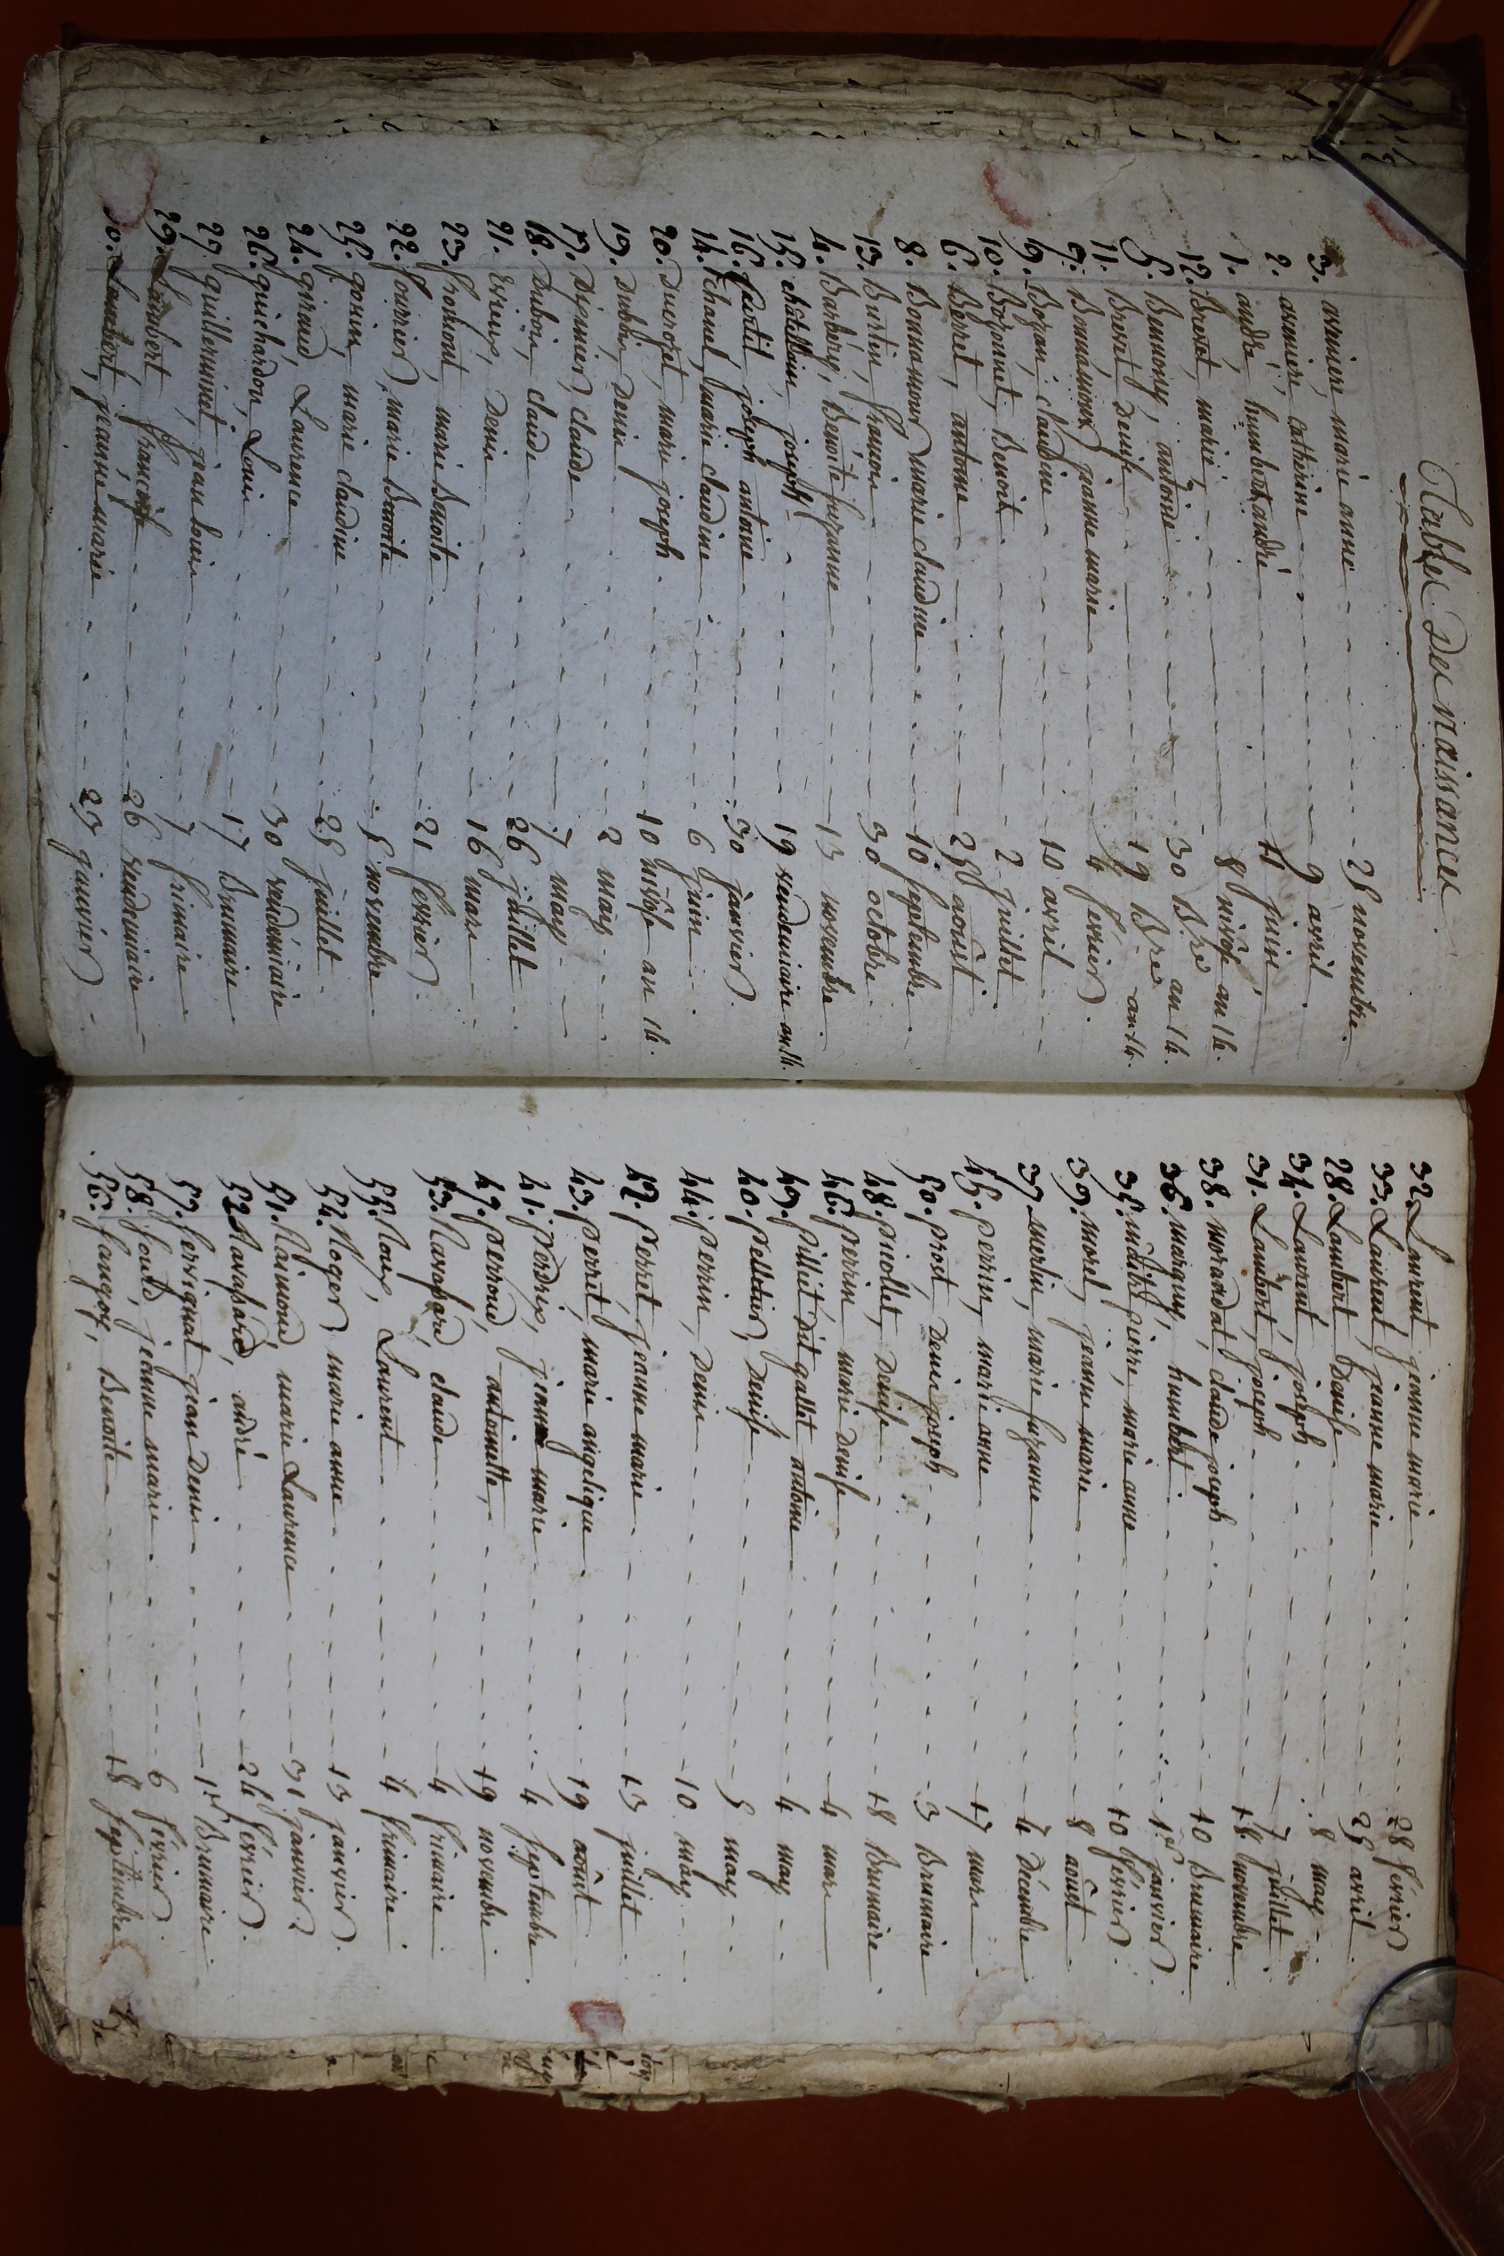 Tables Des naissances
3. avinier marie anne - - - 25 novembre.
2. avinier, catherine - - - 9 avril.
1. andré, humbert andré - - - 11 juin
12. Brevet, marie, - - - 8 nivose an 14.
5. Bennony, antoine - - - 30 B.re an 14.
11. Brevet Denise - - - 19 B.re an 14.
7. Bonnamour jeanne marie - - - 4 février.
9. Bozon, claudine - - - 10 avril
10. Bozonnet, Benoit - - - 2 juillet
6. Berret, antoine - - - 25 août
8. Bonnamour marie claudine - - - 10 septembre.
13. Burtin, françois - - - 30 octobre.
4. Barbery, Benoite suzanne - - - 13 novembre.
15. chatelain, joseph - - - 19 vendemiaire an 14.
16. joseph antoine - - - 30 janvier.
14. marie claudine - - - 6 juin
20. Ducrozet, marie joseph - - - 10 nivose an 14.
19. Dubois, Denis - - - 2 may
17. claude - - - 7 may
18. Dubois, claude - - - 26 juillet
21. Denis - - - 16 mars
23. fromont, marie Benoite - - - 21 février.
22. fournier, marie Benoite - - - 5 novembre
25. gonin, marie claudine - - - 25 juillet
24. giraud, Laurence - - - 30 vendémiaire
26. guichardon, Louis - - - 17 Brumaire
27. guilleminot, jean louis - - - 7 frimaire
29. Lambert françoise - - - 26 vendemiaire
30. Lambert, jeanne marie - - - 23 janvier
32. Laurent jeanne marie - - - 28 février
33. Laurent, jeanne marie - - - 25 avril
28. Lambert Denise - - - 8 may
34. Laurent, joseph - - - 7 juillet
31. Lambert, joseph - - - 18 novembre
38. morandat claude joseph - - - 10 Brumaire
36. marguy, humbert - - - 1er janvier.
35. pierre, marie anne - - - 10 février.
39. morel, jeanne marie - - - 8 août
37. merlin, marie suzanne - - - 4 Décembre
45. perrin, marie anne - - - 17 mars
50. prost, Denis joseph - - - 3 Brumaire
48. piollet, Denise - - - 18 Brumaire.
46. perrin marie denise - - - 4 mars
49. pilliet dit gallet antoine - - - 4 may
40. pelletier, Denise - - - 5 may
44. perrin, Denis - - - 10 may
42. perret jeanne marie - - - 13 juillet
43. perret, marie angelique - - - 19 août
41. perdrix, jeanne marie - - - 4 septembre.
47. perroud, antoinette, - - - 19 novembre.
53. Ravassard, claude - - - 4 frimaire
55. Roux, Laurent - - - 4 frimaire.
54. Roger, marie anne - - - 13 janvier.
51. Raimond, marie Laurence - - - 31 janvier.
52. Ravassard, andré - - - 24 février.
57. Servignat jean Denis - - - 1er Brumaire.
58. jeanne marie - - - 6 février.
56. Sangoy, Benoite - - - 18 septembre